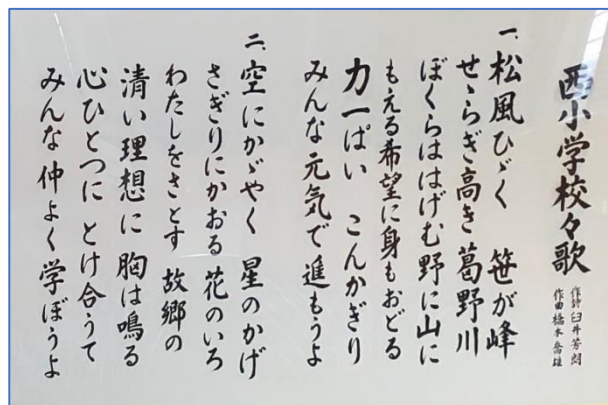 西小学校々歌
作詩 臼井芳朗
作曲 橋本喬雄
一、松風ひゞく 笹が峰
せゝらぎ高き 葛野川
ぼくらははげむ野に山に
もえる希望に身もおどる
力一ぱい こんかぎり
みんな元気で進もうよ
二、空にかゞやく 星のかげ
さぎりにかおる 花のいろ
わたしをさとす 故郷の
清い理想に 胸は鳴る
心ひとつに とけ合うて
みんな仲よく学ぼうよ